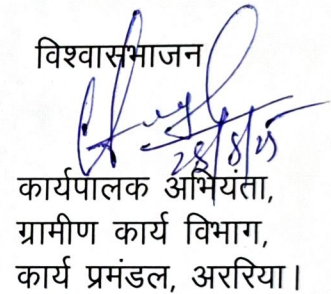 विश्वासभाजन
28/8/25
कार्यपालक अभियंता,
ग्रामीण कार्य विभाग,
कार्य प्रमंडल, अररिया।